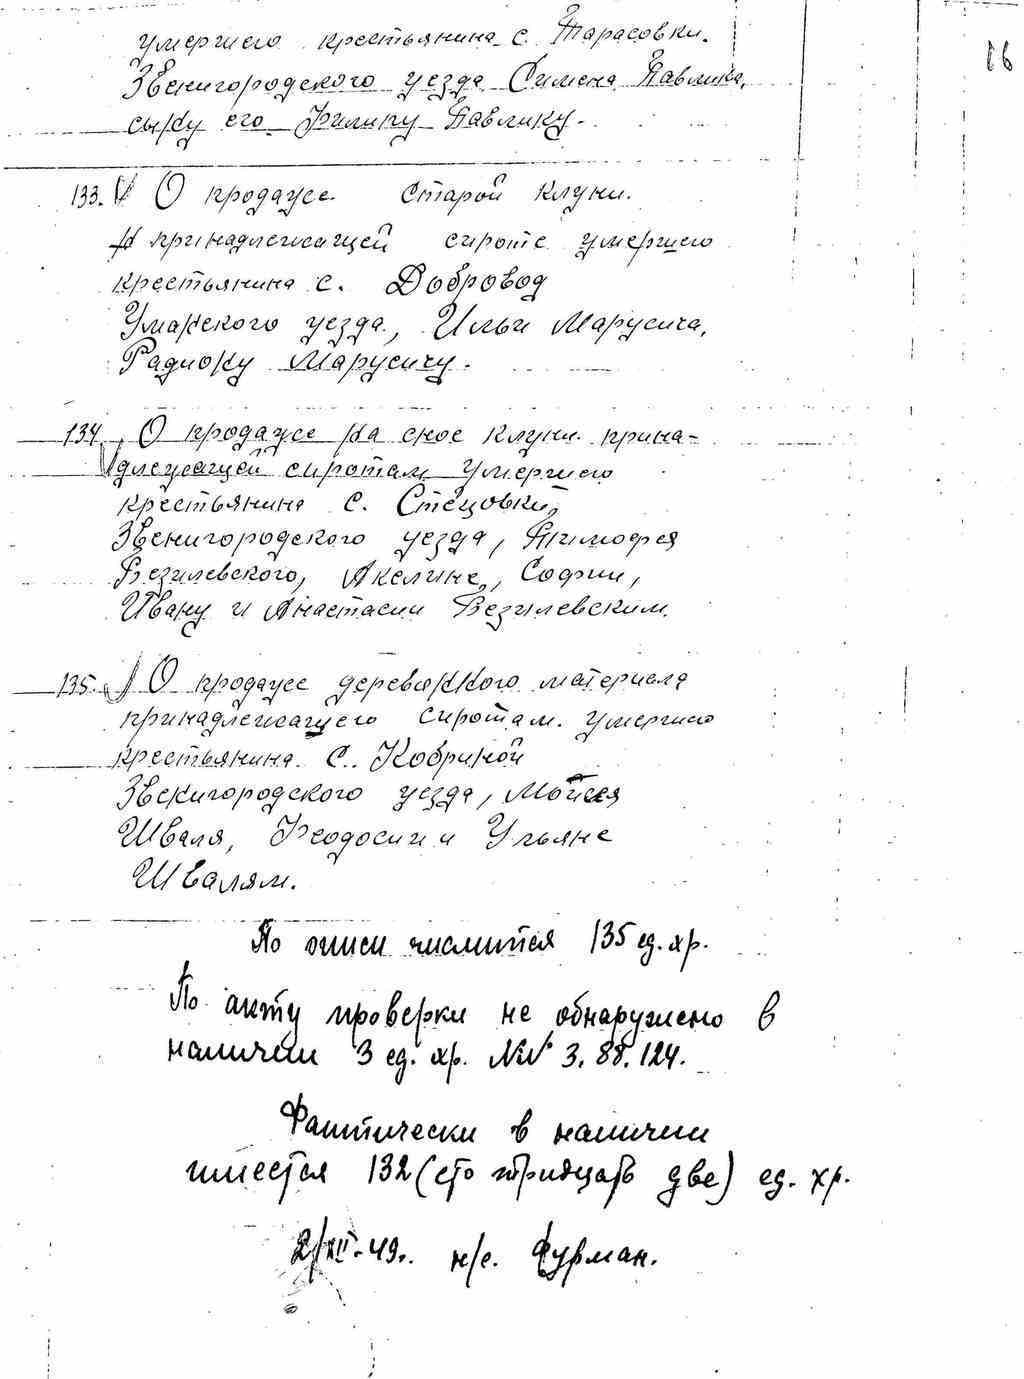 умершего крестьянина с. Тарасовки.
16
Звенигородского уезда Симена Павлика,
сыну его Филипу Павлику.
133. О продаже старой клуни.
принадлежащей сироте умершего
крестьянина с. Добровод
Уманского уезда, Ильи Марусича,
Радиону Марусичу.
134. О продаже на снос клуни прина-
длежащей сиротам умершего
крестьянина с. Стецовки,
Звенигородского уезда, Тимофея
Везилевского, Акелине, Софии,
Ивану и Анастасии Везилевским.
135. О продаже деревянного материала
принадлежащего сиротам умершего
крестьянина с. Кобриной
Звенигородского уезда, Мойсея
Шваля, Феодосии и Ульяне
Швалям.
По описи числится 135 ед. хр.
По акту проверки не обнаружено в
наличии 3 ед. хр. №№ 3. 88. 124.
Фактически в наличии
имеется 132 (сто тридцать две) ед. хр.
2/XII-49. н/с. Фурман.